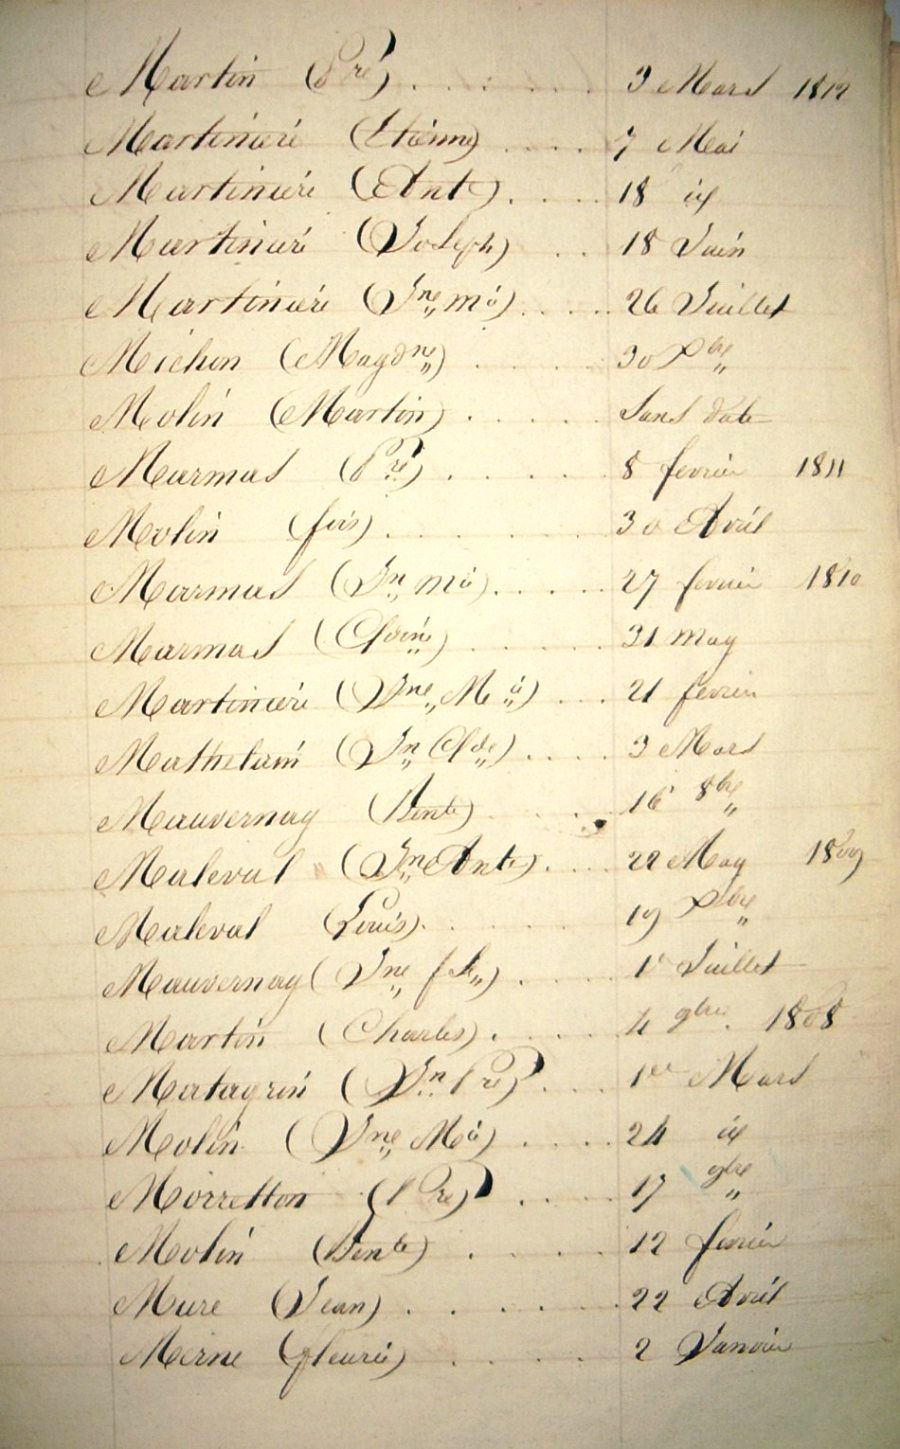 Martin (Pre) . . . . . . 3 Mars 1812
Martiniere (Etienne) . . . . 7 Mai
Martiniere (Ante) . . . . 18 id
Martiniere (Joseph) . . 18 Juin
Martiniere (Jne mie) . . . . 26 Juillet
Michon (Magdne) . . . . 30 Xbre
Molin (Martin) . . . . . Sans date
Marmas (Pre) . . . . . 8 fevrier 1811
Molin (fois) . . . . . . 30 Avril
Marmas (Jn mie) . . . . . 27 fevrier 1810
Marmas (Cldine) . . . . . 31 may
Martiniere (Jne Mie) . . . 21 fevrier
Mathelain (Jn Clde) . . . . 3 Mars
Mauvernay (Bente) . . . . 16 8bre
Maleval (Jn Ante) . . . . 22 May 1809
Maleval (Louis) . . . . . 19 Xbre
Mauvernay (Jne fse) . . . . 1r Juillet
Martin (Charles) . . . . 4 9bre . 1808
Matagrin (Jn Pre) . . . . 1er Mars
Molin (Jne Mie) . . . . 24 id
Morretton (Pre) . . . . 17 9bre
Molin (Bente) . . . . 12 fevrier
Mure (Jean) . . . . . . 22 Avril
Merne (fleurie) . . . . 2 Janvier